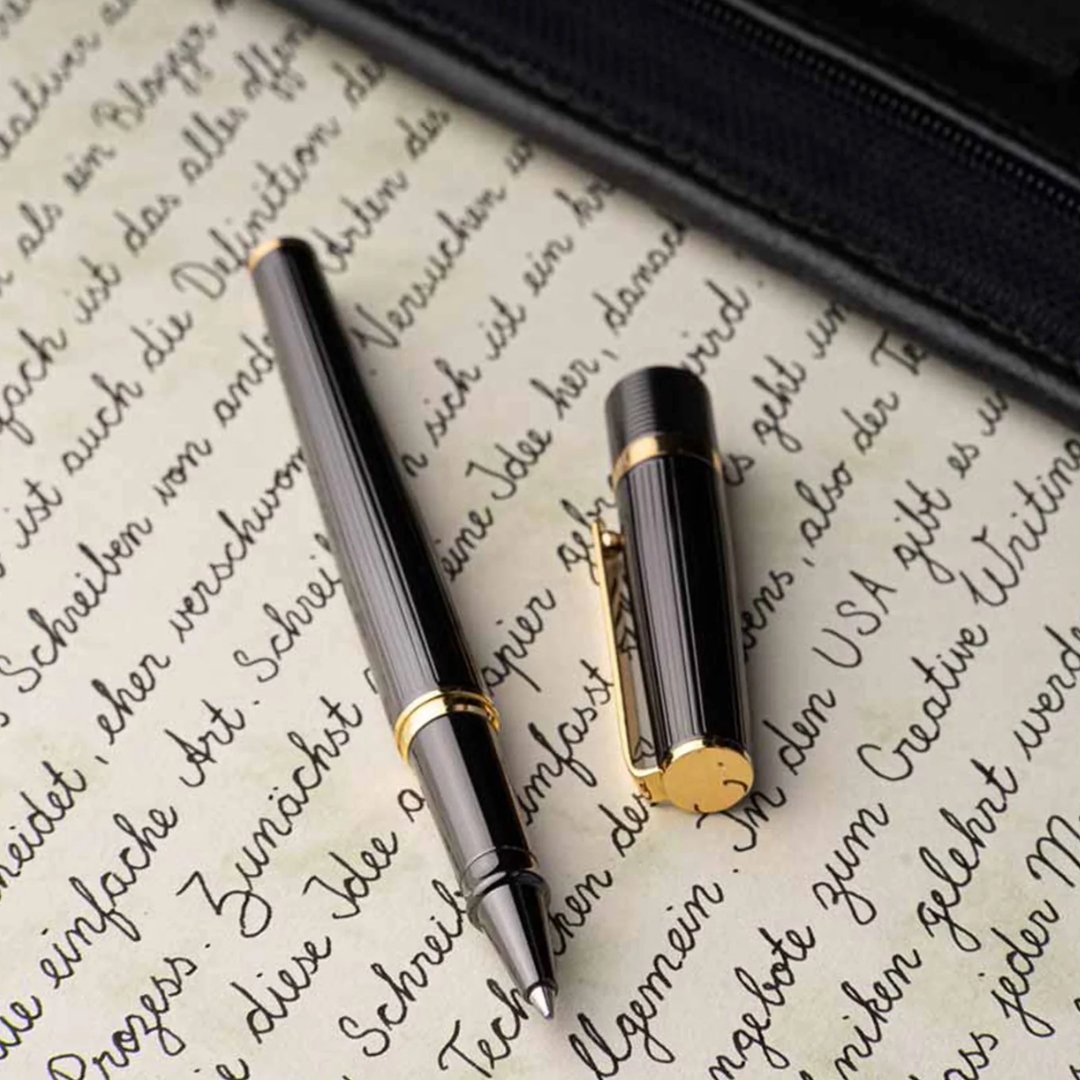 als ein Blogger
fach ist das alles offen
ist auch die Definition de
Schreiben von ande Arten des
neidet, eher verschwom Versuchen
einfache Art. Schrei sich ist ein
Prozess. Zunächst eine Idee her, danach
diese Idee a apier gebr wird.
Schreib umfasst es geht um
Tech ken der ens, also der Te
llgemein. In den USA gibt es u
ngebote zum Creative Writing
niken gelehrt werde
ass jeder M